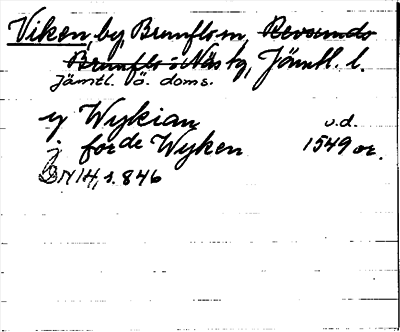 Viken, by, Brunflo sn, Revsunds
Brunflo o Näs tg, Jämtl. l.
Jämtl. ö. doms.
y Wykian u.d.
j forde Wyken 1549 or.
NIH, s. 846